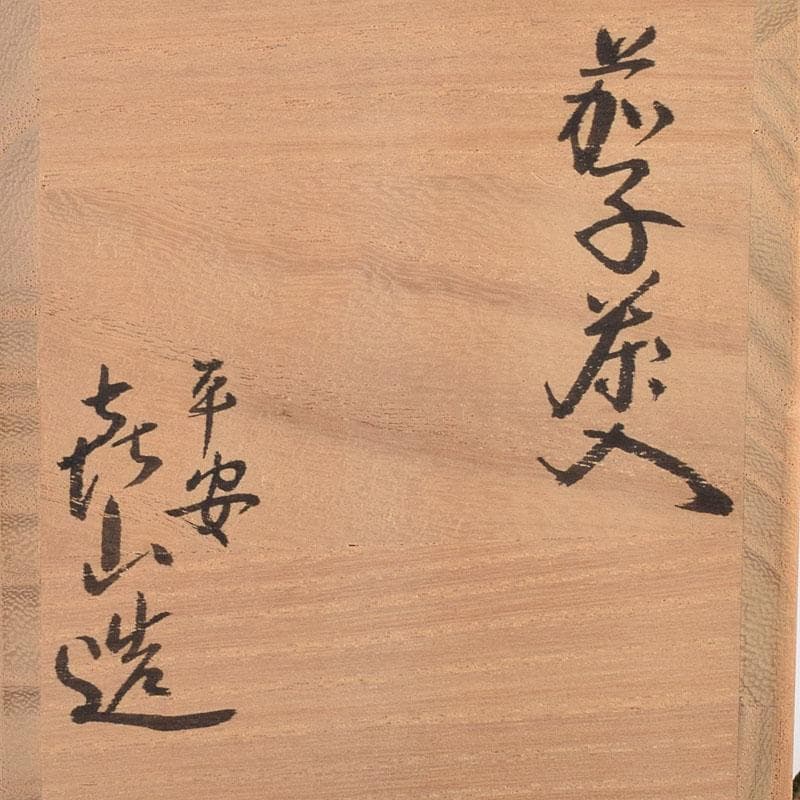 茄子茶入
平安
㐂山造